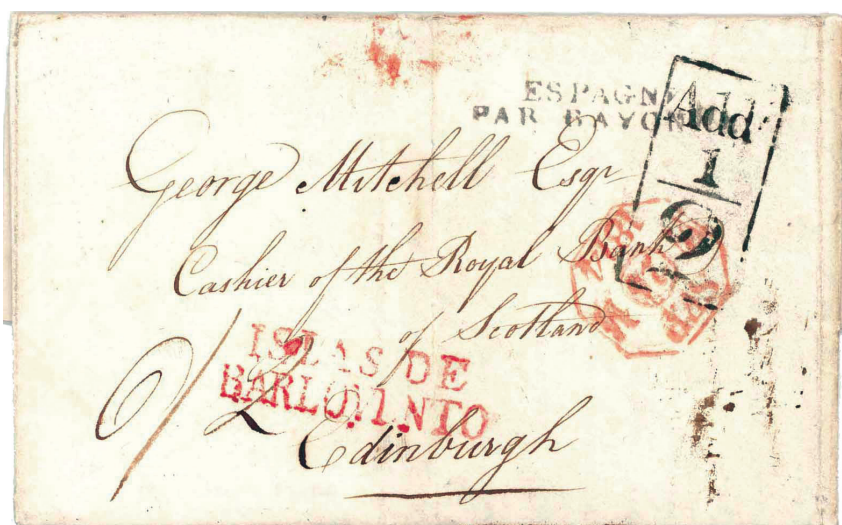 ESPAGNE
PAR BAYONNE
Add
1
2
George Mitchell Esqr
Cashier of the Royal Bank
of Scotland
ISLAS DE
BARLOVINTO
2
Edinburgh